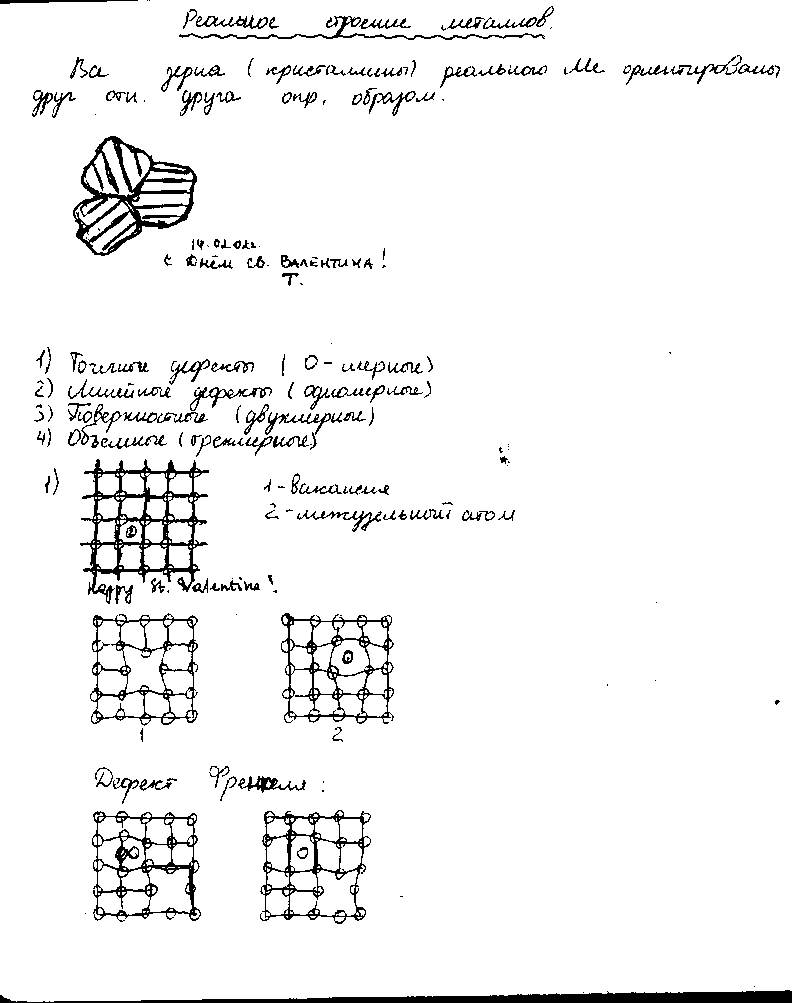 Реальное строение металлов.
Все зерна (кристаллины) реального Ме ориентированы
друг отн. друга опр. образом.
14.02.02г.
С Днём св. ВАЛЕНТИНА!
Т.
1) Точечные дефекты ( 0 - мерные)
2) Линейные дефекты ( одномерные)
3) Поверхностные (двухмерные)
4) Объемные (трехмерные)
1)
1 - вакансия
2 - межузельный атом
Happy St. Valentine!
1
2
Дефект Френкеля :